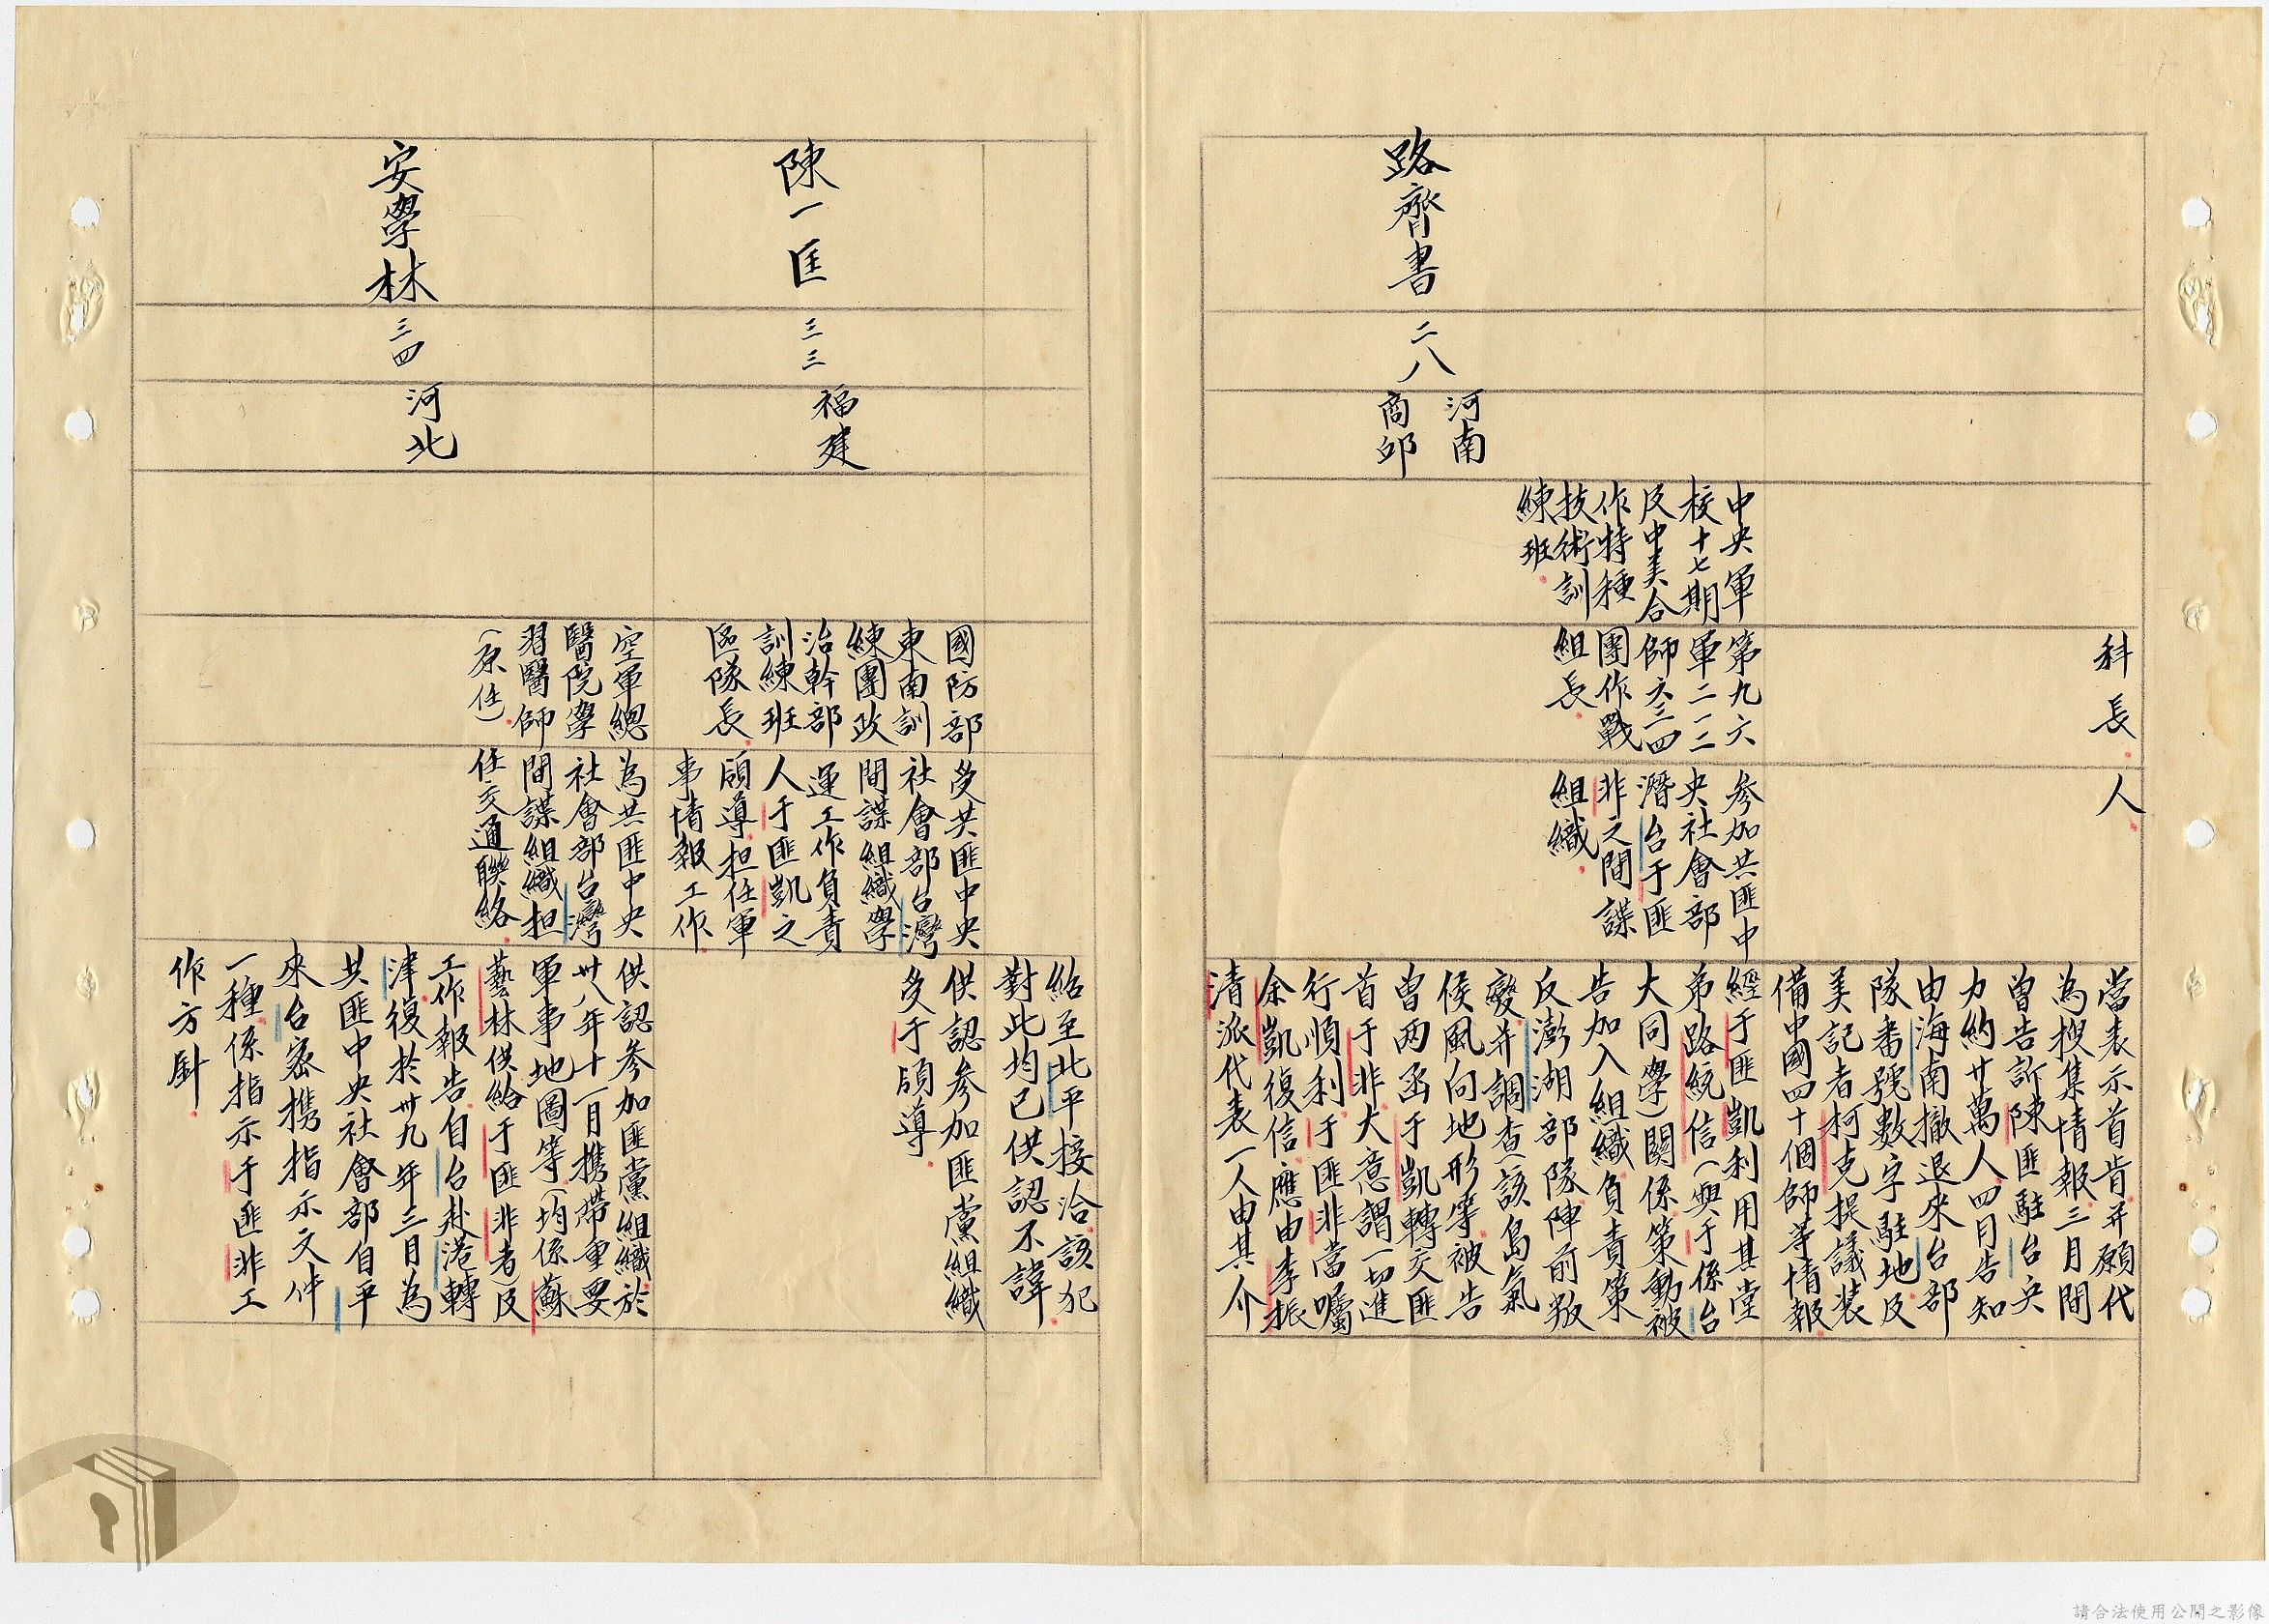 科長.
人.
當表示首肯.并願代
為搜集情報.三月間
曾告訴陳匪駐台兵
力約廿萬人.四月告知
由海南撤退來台部
隊番號數字駐地.及
美記者柯克提議裝
備中國四十個師等情報.
路齊書
二八
河南
商邱
中央軍
校十七期
及中美合
作特種
技術訓
練班.
第九六
軍二一二
師六三四
團作戰
組長.
參加共匪中
央社會部
潛台于匪
非之間諜
組織.
經于匪凱利用其堂
弟路統信(與于係台
大同學)關係策動被
告加入組織.負責策
反澎湖部隊陣前叛
變.并調查該島氣
侯風向地形等.被告
曾兩函于凱轉交匪
首于非.大意謂一切進
行順利.于匪非當囑
余凱復信.應由李振
清派代表一人由其介
紹至北平接洽.該犯
對此均已供認不諱.
陳一匡
三三
福建
國防部
東南訓
練團政
治幹部
訓練班
區隊長.
受共匪中央
社會部台灣
間諜組織學
運工作負責
人于匪凱之
領導.担任軍
事情報工作.
供認參加匪黨組織
受于領導.
安學林
三四
河北
空軍總
醫院學
習醫師
(原任).
為共匪中央
社會部台灣
間諜組織担
任交通聯絡.
供認參加匪黨組織.於
卅八年十一月携帶重要
軍事地圖等.(均係蘇
藝林供給于匪非者)及
工作報告.自台赴港轉
津.復於卅九年三月為
共匪中央社會部自平
來台密携指示文件
一種.係指示于匪非工
作方針.
請合法使用公開之影像